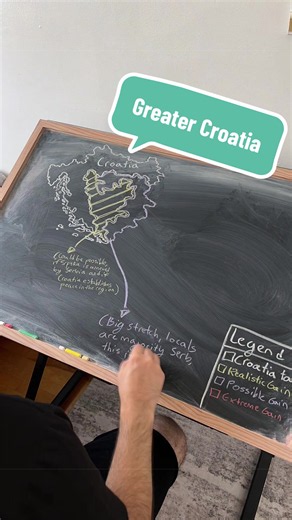 Greater Croatia
Croatia
(Could be possible,
if Srpska is annexed
by Serbia and
Croatia establishes
peace in the region)
(Big stretch, locals
are majority Serb,
this
Legend
Croatia
Realistic Gain
Possible Gain
Extreme Gain